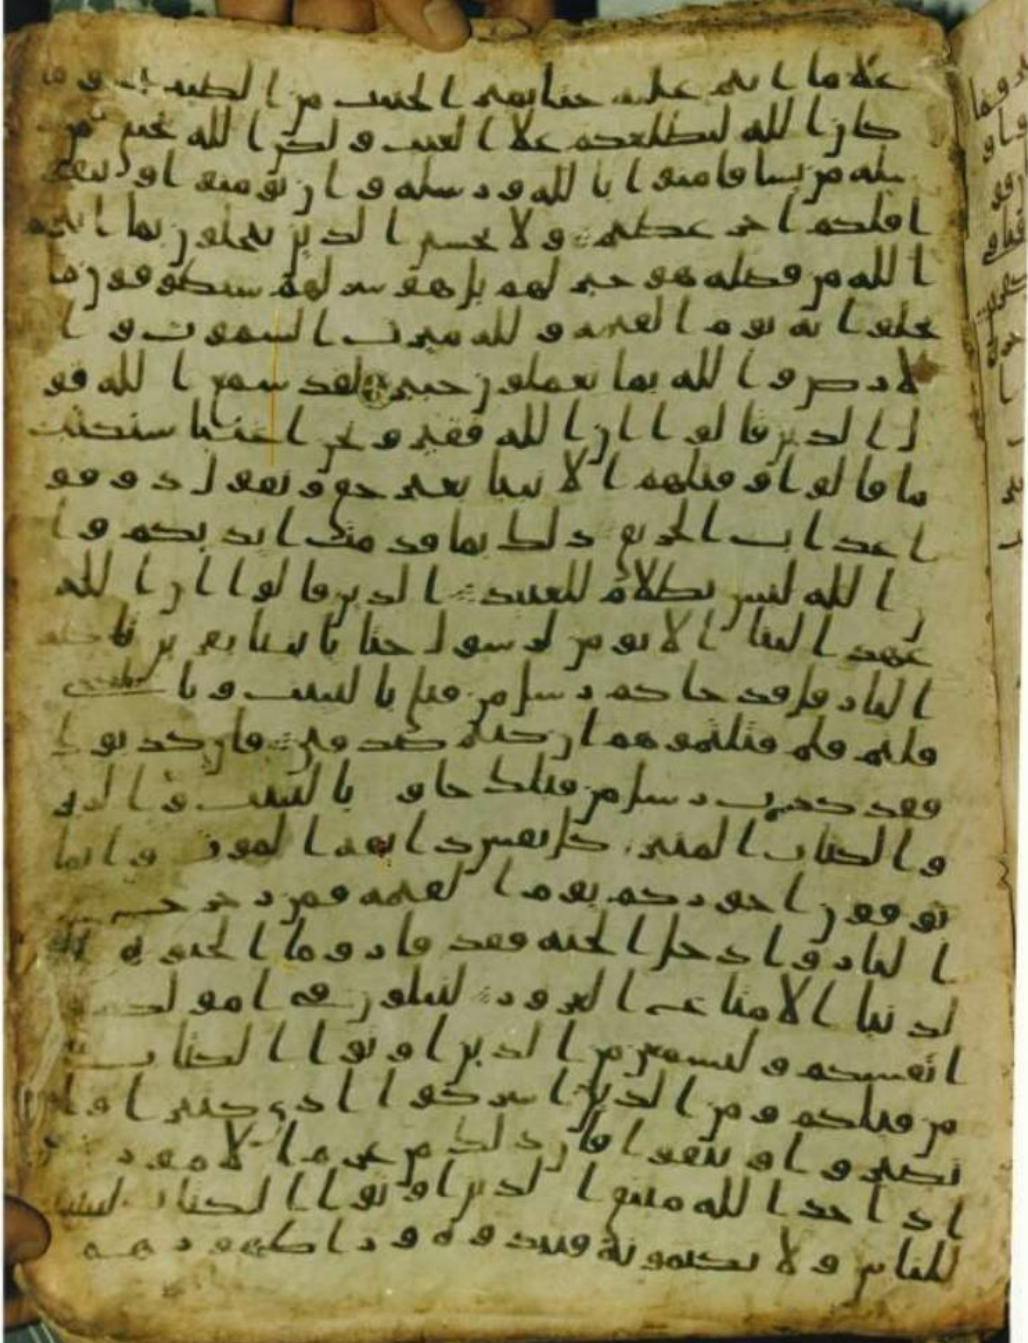 علا ما انتم عليه حتا يميز الخبيث من الطيب وما
كان الله ليطلعكم علا الغيب ولكن الله يجتبي من
رسله من يشا فامنوا بالله ورسله وان تومنوا وتتقو
ا فلكم اجر عظيم ولا يحسبن الذين يبخلون بما اتهم
الله من فضله هو خير لهم بل هو شر لهم سيطوقون ما
بخلوا به يوم القيمه ولله ميرث السموت وا
لارض والله بما تعملون خبير لقد سمع الله قو
ل الذين قالوا ان الله فقير ونحن اغنيا سنكتب
ما قالوا وقتلهم الانبيا بغير حق ونقول ذوقو
ا عذاب الحريق ذلك بما قدمت ايديكم وا
ن الله ليس بظلام للعبيد الذين قالوا ان الله
عهد الينا الا نومن لرسول حتا ياتينا بقربن تاكله
النار قل قد جاكم رسل من قبلي بالبينت وبالذي
قلتم فلم قتلتموهم ان كنتم صدقين فان كذبوك
فقد كذب رسل من قبلك جاو بالبينت والزبر
والكتاب المنير كل نفس ذايقه الموت وانما
توفون اجوركم يوم القيمه فمن زحزح عن
النار وادخل الجنه فقد فاز وما الحيوه ا
لدنيا الا متاع الغرور لتبلون في امولكم و
انفسكم ولتسمعن من الذين اوتوا الكتاب
من قبلكم ومن الذين اشركوا اذى كثيرا وان
تصبروا وتتقوا فان ذلك من عزم الامور و
اذ اخذ الله ميثق الذين اوتوا الكتاب لتبيننه
للناس ولا تكتمونه فنبذوه ورا ظهورهم